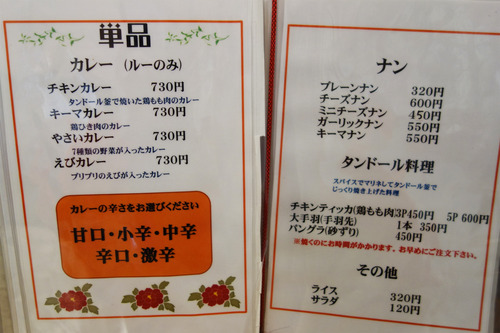 単品
カレー (ルーのみ)
チキンカレー 730円
タンドール釜で焼いた鶏もも肉のカレー
キーマカレー 730円
鶏ひき肉のカレー
やさいカレー 730円
7種類の野菜が入ったカレー
えびカレー 730円
プリプリのえびが入ったカレー
カレーの辛さをお選びください
甘口・小辛・中辛
辛口・激辛
ナン
プレーンナン 320円
チーズナン 600円
ミニチーズナン 450円
ガーリックナン 550円
キーマナン 550円
タンドール料理
スパイスでマリネしてタンドール釜で
じっくり焼き上げた料理
チキンティッカ(鶏もも肉)3P450円 5P 600円
大手羽(手羽先) 1本 350円
パングラ(砂ずり) 450円
※焼くのにお時間がかかります、お早めにご注文下さい。
その他
ライス 320円
サラダ 120円